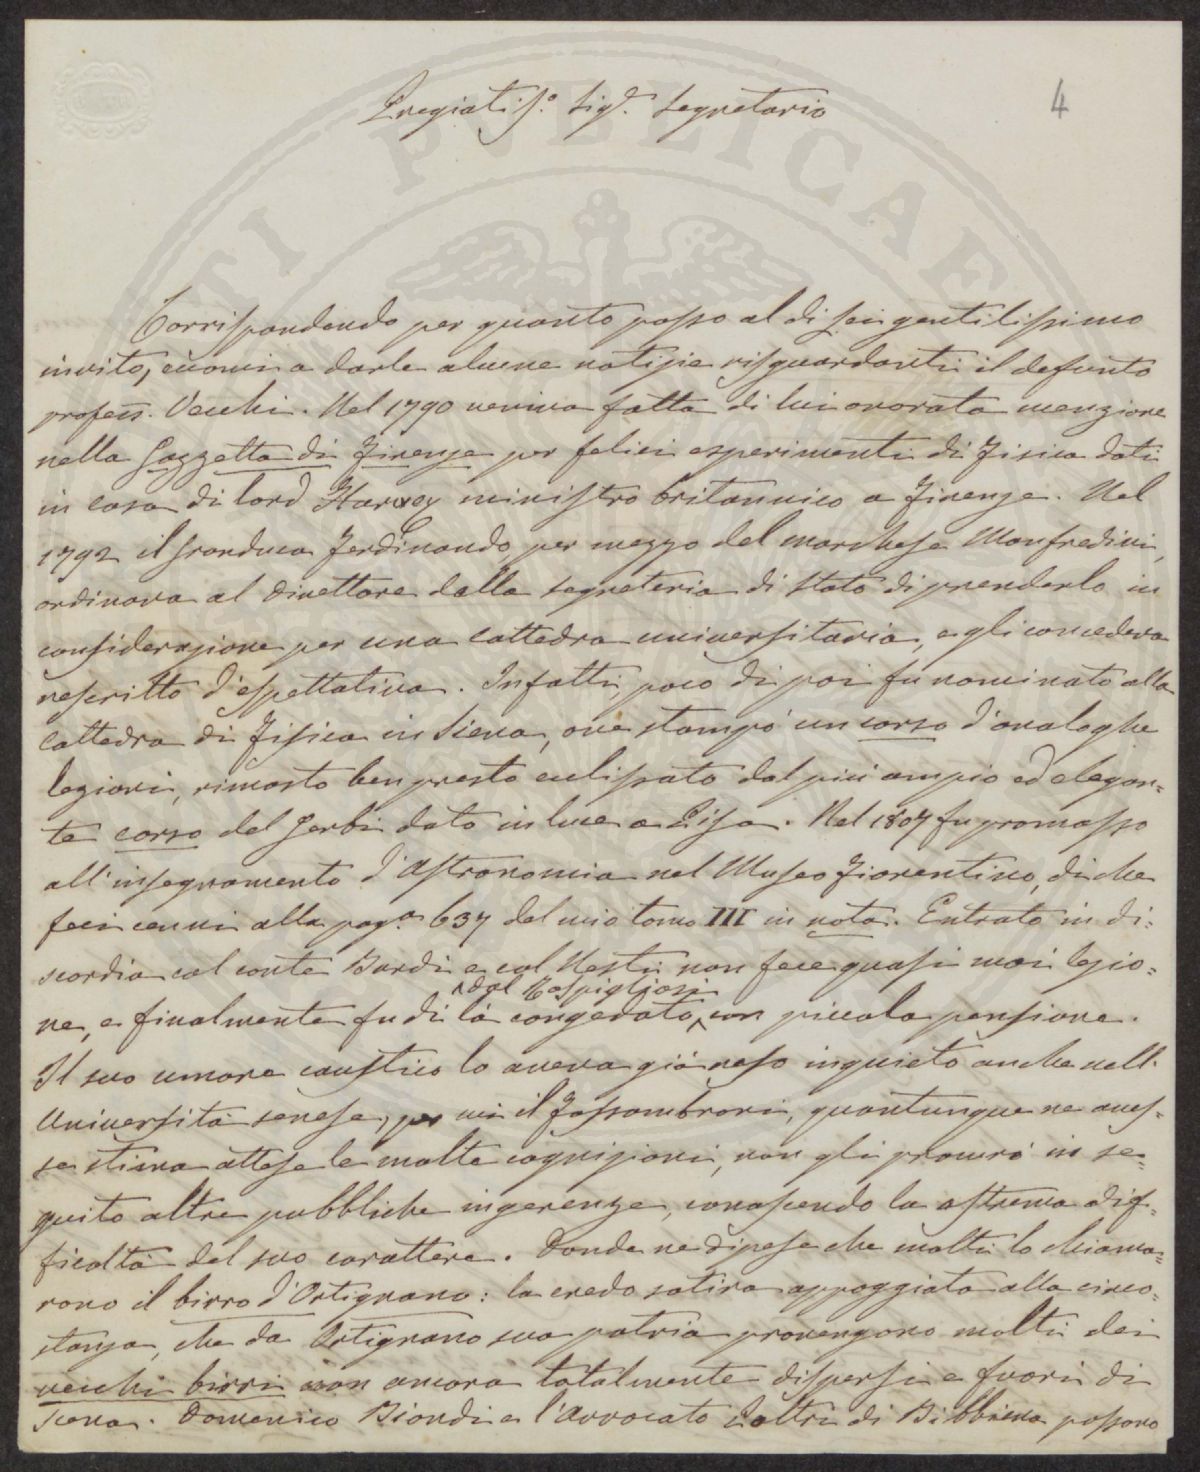 4
Pregiatis.º Sig.r Segretario
Corrispondendo per quanto posso al di Lei gentilissimo
invito, eccomi a darle alcune notizie risguardanti il defunto
profess. Vecchi. Nel 1790 veniva fatta di lui onorata menzione
nella Gazzetta di Firenze per felici esperimenti di Fisica dati
in casa di lord Harvey ministro britannico a Firenze. Nel
1792 il Granduca Ferdinando, per mezzo del marchese Manfredini,
ordinava al Direttore della segreteria di Stato di prenderlo in
considerazione per una cattedra universitaria, e gli concedeva
rescritto d'espettativa. Infatti, poco di poi fu nominato alla
cattedra di Fisica in Siena, ove stampò un corso d'analoghe
lezioni, rimasto ben presto ecclissato dal più ampio ed elegan=
te corso del Gerbi dato in luce a Pisa. Nel 1807 fu promosso
all'insegnamento d'Astronomia nel Museo Fiorentino, di che
feci cenni alla pag.a 637 del mio tomo III in nota. Entrato in di=
scordia col conte Bardi e col Nesti non fece quasi mai lezio=
ne, e finalmente fu di là congedato dal Rospigliosi con piccola pensione.
Il suo umore caustico lo aveva già reso inquieto anche nell'
Università senese, per cui il Fossombroni, quantunque ne aves=
se stima attese le molte cognizioni, non gli procurò in se=
guito altre pubbliche ingerenze, conoscendo la estrema dif=
ficoltà del suo carattere. Donde ne dipese che molti lo chiama=
rono il birro d'Ortignano: la credo satira appoggiata alla circo=
stanza, che da Ortignano sua patria provengono molti dei
vecchi birri non ancora totalmente dispersi e fuori di
scena. Domenico Biondi e l'Avvocato Poltri di Bibbiena possono
PUBLICAE